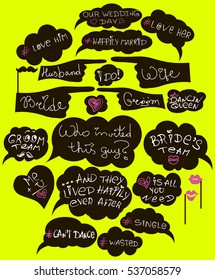 OUR WEDDING
DAY
#LOVE HIM
#LOVE
HER
#HAPPILY MARRIED
Husband
I DO!
Wife
Bride
Groom
DANCING
QUEEN
GROOM
TEAM
Who invited
this guy?
BRIDE'S
TEAM
...AND THEY
LIVED HAPPILY
EVER AFTER
IS ALL
YOU
NEED
#SINGLE
#CAN'T DANCE
#WASTED
shutterstock
IMAGE ID: 537058579
www.shutterstock.com